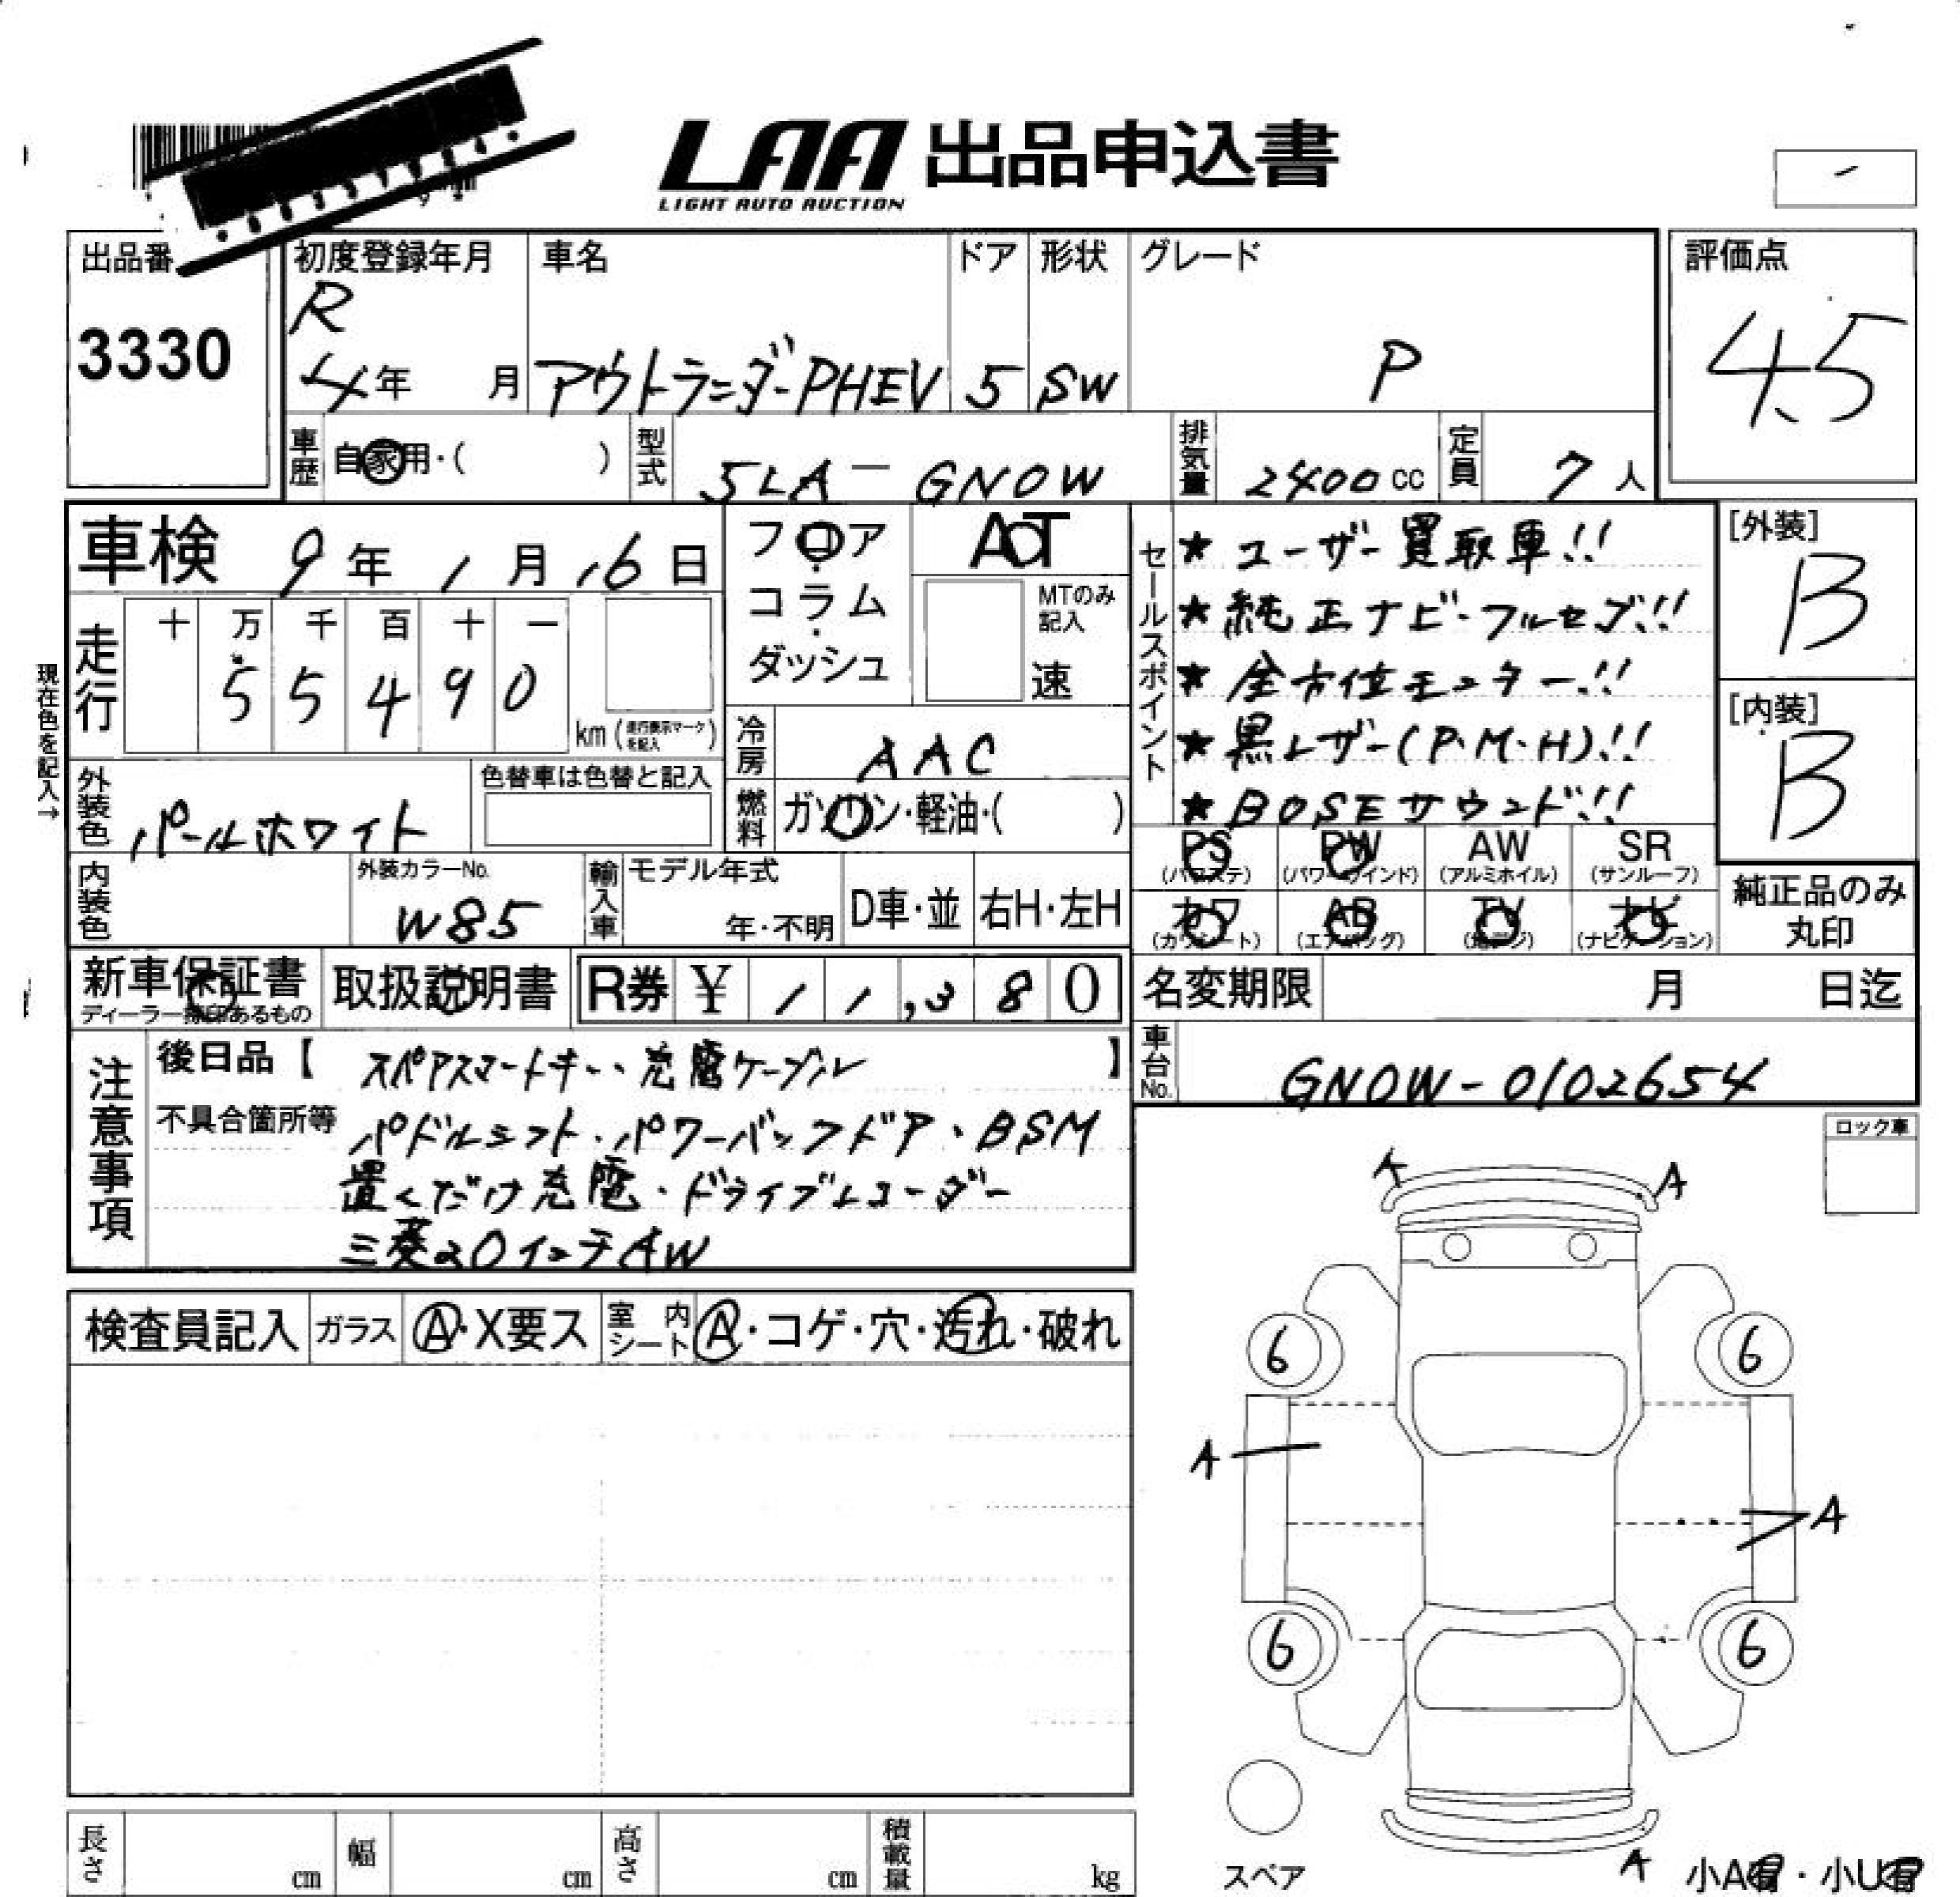 LAA 出品申込書
LIGHT AUTO AUCTION
出品番
3330
初度登録年月
R
4年 月
車名
アウトランダーPHEV
ドア
5
形状
SW
グレード
P
評価点
4.5
車歴
自家用・( )
型式
5LA-GN0W
排気量
2400cc
定員
7人
車検 9年1月16日
フロア・コラム・ダッシュ
AT
MTのみ記入
速
セールスポイント
★ユーザー買取車!!
★純正ナビ・フルセグ!!
★全方位モニター!!
★黒レザー(P・M・H)!!
★BOSEサウンド!!
[外装]
B
[内装]
B
現在色を記入→
走行
十 万 千 百 十 一
5 5 4 9 0
km(走行表示マークを記入)
冷房
AAC
外装色
パールホワイト
色替車は色替と記入
燃料
ガソリン・軽油・( )
PS(パワステ) PW(パワーウインド) AW(アルミホイル) SR(サンルーフ)
カワ(カワシート) AB(エアバッグ) TV(地デジ) ナビ(ナビゲーション)
純正品のみ丸印
内装色
外装カラーNo.
W85
輸入車
モデル年式
年・不明
D車・並
右H・左H
新車保証書
取扱説明書
R券 ¥11,380
名変期限 月 日迄
車台No.
GN0W-0102654
注意事項
後日品【スペアスマートキー、充電ケーブル】
不具合箇所等
パドルシフト・パワーバックドア・BSM
置くだけ充電・ドライブレコーダー
三菱20インチAW
ロック車
検査員記入 ガラス A・X要ス 室内シート A・コゲ・穴・汚れ・破れ
A A
6 6
A
A
6 6
スペア
A
小A有・小U有
長さ cm 幅 cm 高さ cm 積載量 kg